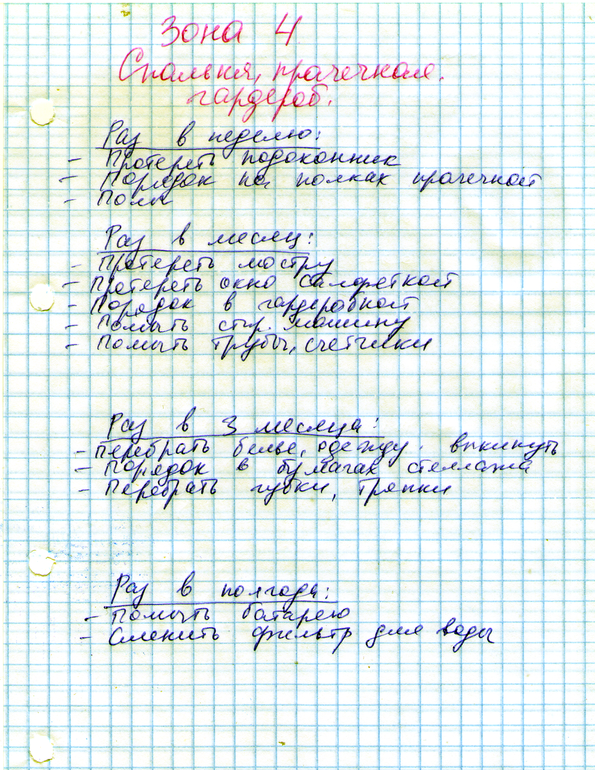 Зона 4
Спальня, прачечная,
гардероб.
Раз в неделю:
- Протереть подоконник
- Порядок на полках прачечной
- Полы
Раз в месяц:
- Протереть люстру
- Протереть окно салфеткой
- Порядок в гардеробной
- Помыть стир. машину
- Помыть трубы, счетчики
Раз в 3 месяца:
- Перебрать белье, одежду. выкинуть
- Порядок в бумагах стеллажа
- Перебрать губки, тряпки
Раз в полгода:
- Помыть батарею
- Сменить фильтр для воды